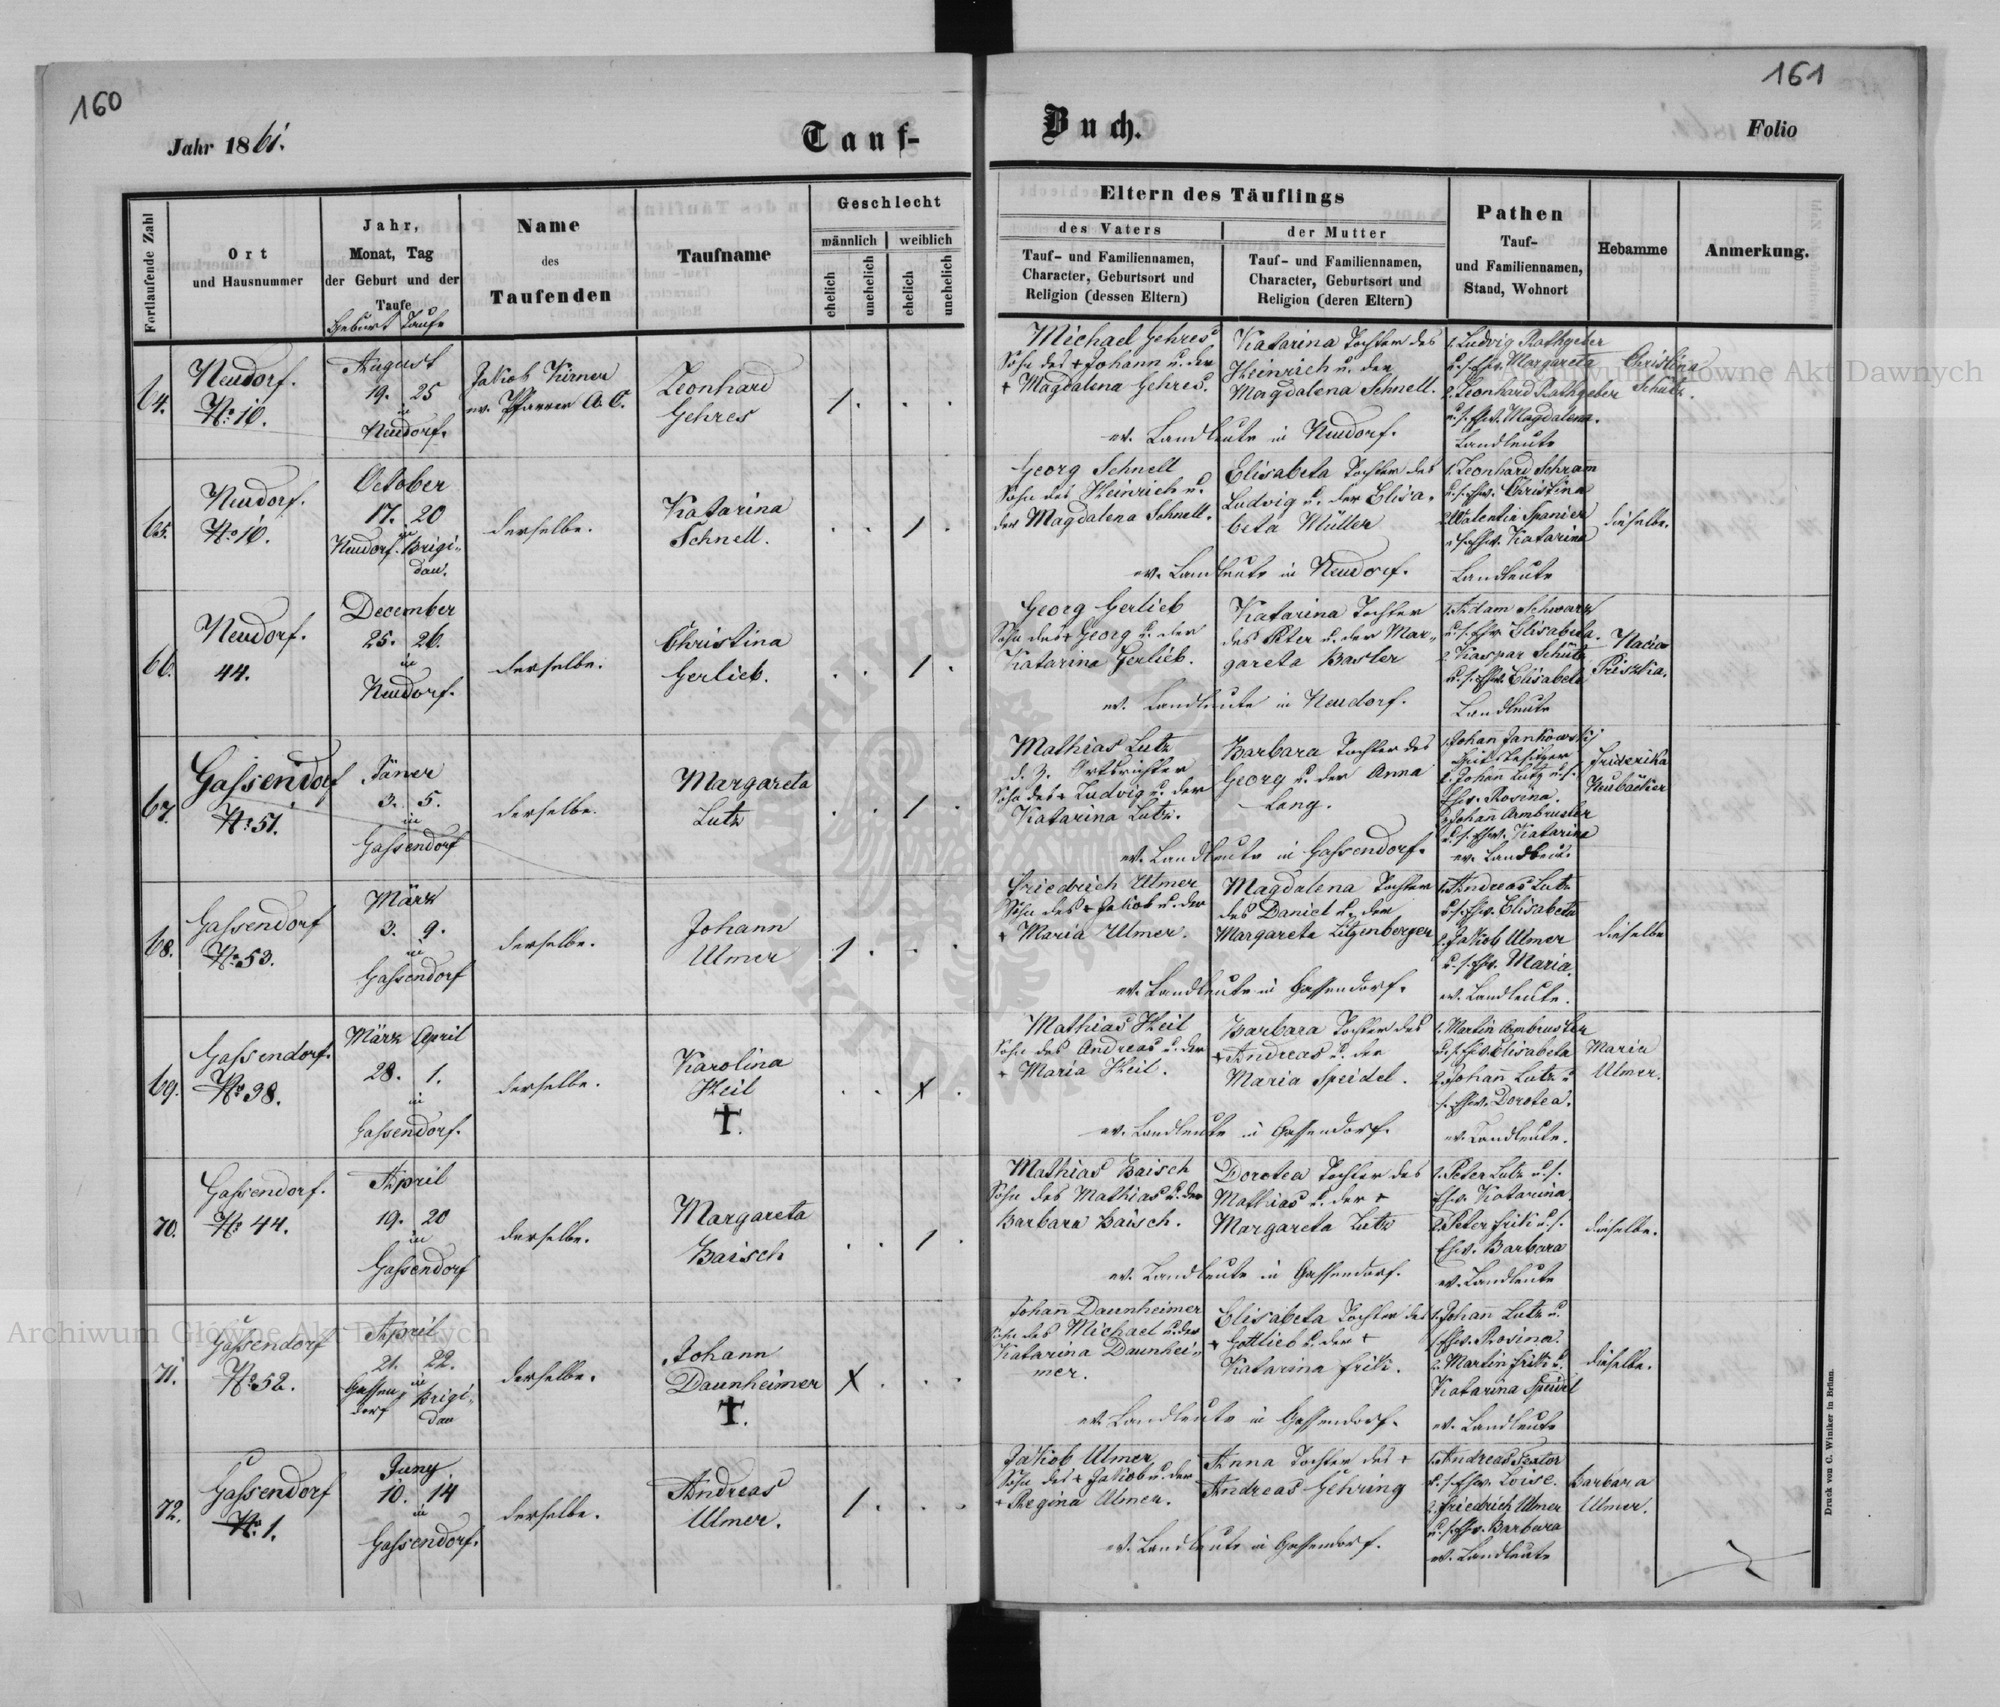 160
161
Jahr 1861.
Tauf-
Buch.
Folio
Fortlaufende Zahl
Ort
und Hausnummer
Jahr,
Monat, Tag
der Geburt und der
Taufe
Geburt Taufe
Name
des
Taufenden
Taufname
Geschlecht
männlich
weiblich
ehelich
unehelich
ehelich
unehelich
Eltern des Täuflings
des Vaters
der Mutter
Tauf- und Familiennamen,
Character, Geburtsort und
Religion (dessen Eltern)
Tauf- und Familiennamen,
Character, Geburtsort und
Religion (deren Eltern)
Pathen
Tauf-
und Familiennamen,
Stand, Wohnort
Hebamme
Anmerkung.
64.
Neudorf.
No. 10.
August
19. 25
in
Neudorf.
Jakob Kirner
ev. Pfarrer A. C.
Leonhard
Gehres
1.
Michael Gehres,
Sohn des + Johann u. der
+ Magdalena Gehres.
Katarina Tochter des
Heinrich u. der
Magdalena Schnell.
ev. Landleute in Neudorf.
1. Ludvig Rathgeber
u. s. Ehw. Margareta
2. Leonhard Rathgeber
u. s. Ehw. Magdalena.
Landleute
Christina
Schütz.
65.
Neudorf.
No. 10.
October
17. 20
in
Neudorf. Brigi-
dau.
derselbe.
Katarina
Schnell.
1.
Georg Schnell
Sohn des Heinrich u.
der Magdalena Schnell.
Elisabeta Tochter des
Ludvig u. der Elisa-
beta Müller
ev. Landleute in Neudorf.
1. Leonhard Schram
u. s. Ehw. Christina
2. Valentin Spanier
u. s. Ehw. Katarina
Landleute
dieselbe.
66.
Neudorf.
44.
December
25. 26.
in
Neudorf.
derselbe.
Christina
Gerlieb.
1.
Georg Gerlieb
Sohn des + Georg u. der
Katarina Gerlieb.
Katarina Tochter
des Peter u. der Mar-
gareta Basler
ev. Landleute in Neudorf.
1. Adam Schwarz
u. s. Ehw. Elisabeta.
2. Kaspar Schütz
u. s. Ehw. Elisabeta
Landleute
67.
Gassendorf
No. 51.
Jäner
3. 5.
in
Gassendorf
derselbe.
Margareta
Lutz
1.
Mathias Lutz
d. Z. Ortsrichter
Sohn des + Ludvig u. der
Katarina Lutz.
Barbara Tochter des
Georg u. der Anna
Lang.
ev. Landleute in Gassendorf.
1. Johan Jankowskij
Gutsbesitzer
2. Johan Lutz u. s.
Ehw. Rosina.
3. Johann Armbruster
u. s. Ehw. Katarina
ev. Landleut.
Friderika
Neubäcker
68.
Gassendorf
No. 53.
März
3. 9.
in
Gassendorf
derselbe.
Johann
Ulmer
1.
Friedrich Ulmer
Sohn des + Jakob u. der
+ Maria Ulmer.
Magdalena Tochter
des Daniel u. der
Margareta Litzenberger
ev. Landleute in Gassendorf.
1. Andreas Lutz
u. s. Ehw. Elisabeta
2. Jakob Ulmer
u. s. Ehw. Maria.
ev. Landleute.
dieselbe
69.
Gassendorf.
No. 38.
März April
28. 1.
in
Gassendorf.
derselbe.
Karolina
Heil
+.
X
Mathias Heil
Sohn des Andreas u. der
+ Maria Heil.
Barbara Tochter des
+ Andreas u. der
Maria Speidel.
ev. Landleute in Gassendorf.
1. Martin Armbruster
u. s. Ehw. Elisabeta
2. Johann Lutz u
s. Ehw. Dorotea.
ev. Landleute.
Maria
Ulmer.
70.
Gassendorf.
No. 44.
April
19. 20
in
Gassendorf
derselbe.
Margareta
Baisch
1.
Mathias Baisch
Sohn des Mathias u. der
Barbara Baisch.
Dorotea Tochter des
Mathias u. der +
Margareta Lutz
ev. Landleute in Gassendorf.
1. Peter Lutz u. s.
Ehw. Katarina.
2. Peter Frik u. s.
Ehw. Barbara
ev. Landleute
dieselbe.
71.
Gassendorf
No. 52.
April
21. 22.
in
Gassen- Brigi-
dorf dau
derselbe.
Johann
Daunheimer
+.
X
Johan Daunheimer
Sohn des Michael u. der
Katarina Daunhei-
mer.
Elisabeta Tochter des
+ Gottlieb u. der +
Katarina Frik.
ev. Landleute in Gassendorf.
1. Johann Lutz u.
s. Ehw. Rosina.
2. Martin Frik u.
Katarina Speidel
ev. Landleute
dieselbe.
72.
Gassendorf
No. 1.
Juny
10. 14.
in
Gassendorf.
derselbe.
Andreas
Ulmer.
1.
Jakob Ulmer,
Sohn des + Jakob u. der
+ Regina Ulmer.
Anna Tochter des +
Andreas Gehring
ev. Landleute in Gassendorf.
1. Andreas Sextor
u. s. Ehw. Loise.
2. Friedrich Ulmer
u. s. Ehw. Barbara
ev. Landleute
Barbara
Ulmer.
Druck von C. Winiker in Brünn.
Archiwum Główne Akt Dawnych
Archiwum Główne Akt Dawnych